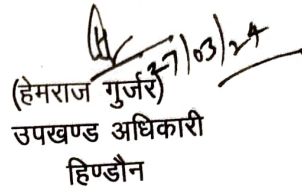 27/03/24
(हेमराज गुर्जर)
उपखण्ड अधिकारी
हिण्डौन